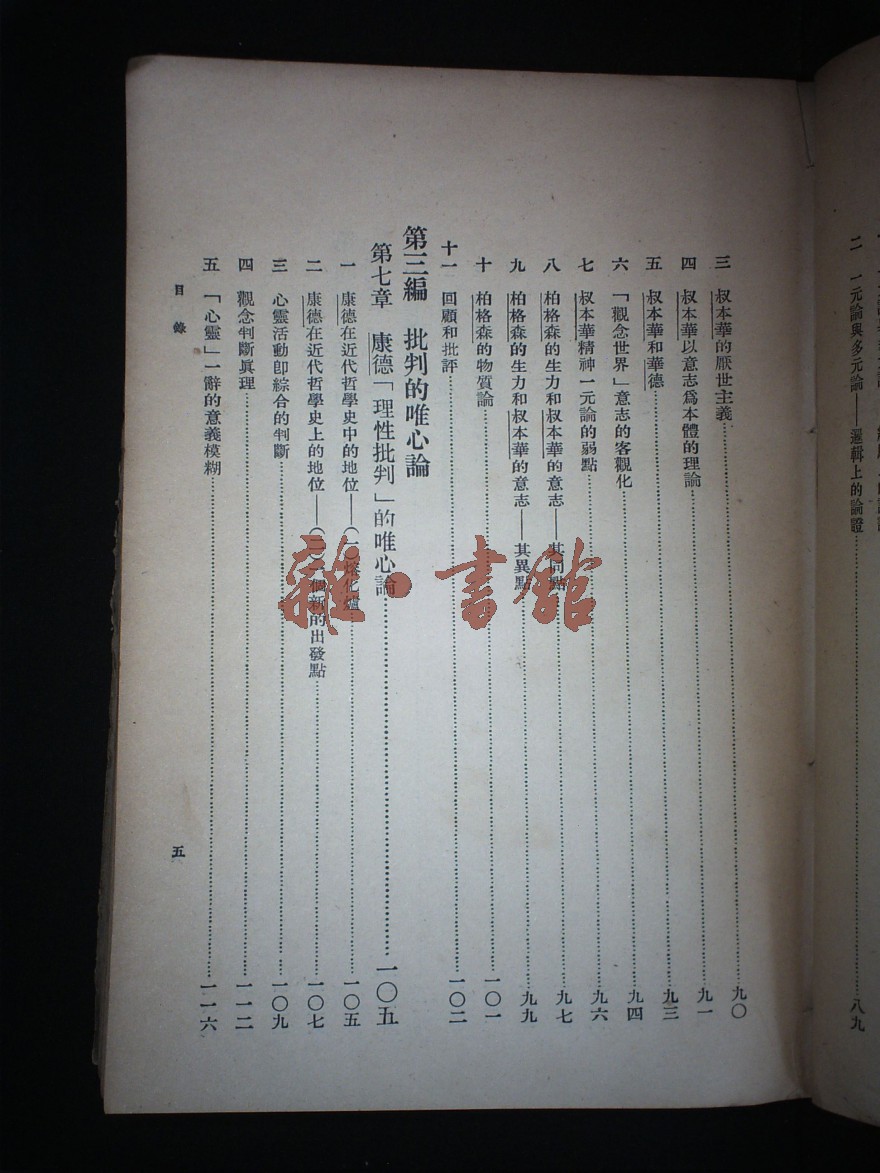 二　一元論與多元論——邏輯上的論證……八九
三　叔本華的厭世主義……九〇
四　叔本華以意志爲本體的理論……九一
五　叔本華和華德……九三
六　「觀念世界」意志的客觀化……九四
七　叔本華精神一元論的弱點……九六
八　柏格森的生力和叔本華的意志——其同點……九七
九　柏格森的生力和叔本華的意志——其異點……九九
十　柏格森的物質論……一〇一
十一　回顧和批評……一〇二
第三編　批判的唯心論
第七章　康德「理性批判」的唯心論……一〇五
一　康德在近代哲學史中的地位——(一)熔化爐……一〇五
二　康德在近代哲學史上的地位——(二)一個新的出發點……一〇七
三　心靈活動卽綜合的判斷……一〇九
四　觀念判斷眞理……一一二
五　「心靈」一辭的意義模糊……一一六
目錄
五
雜·書館